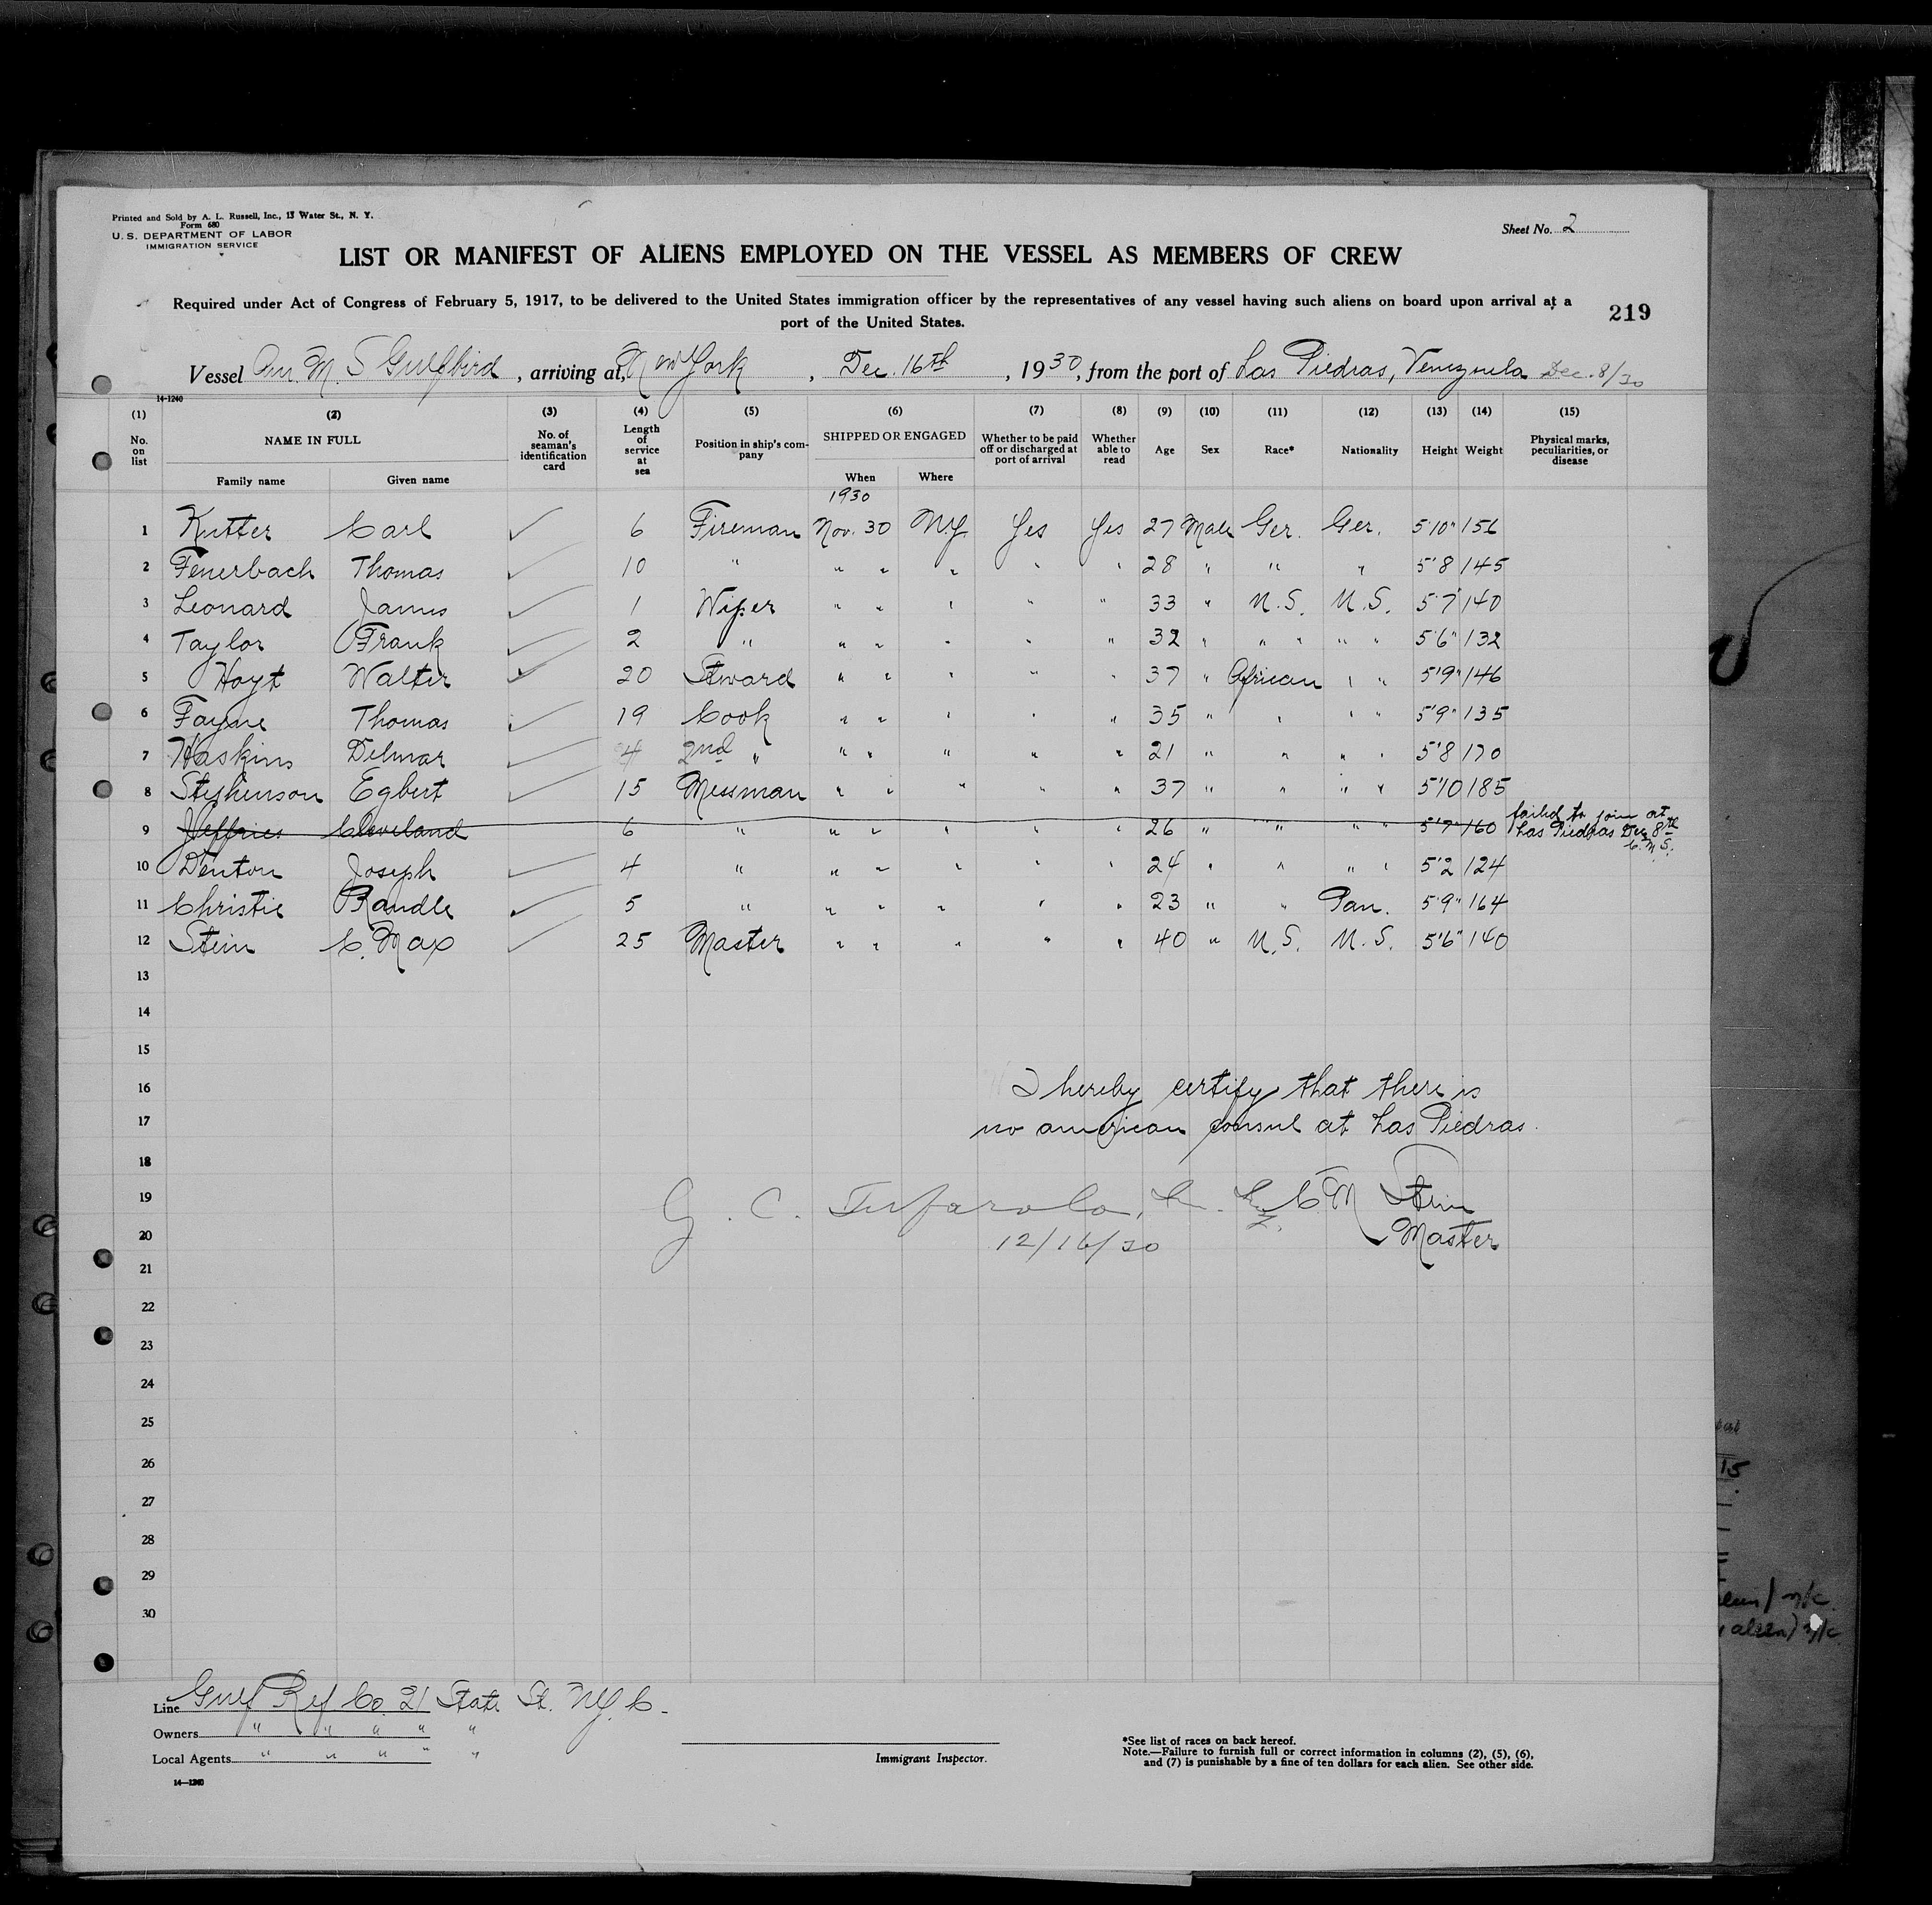 Printed and Sold by A. L. Russell, Inc., 13 Water St., N. Y.
Form 680
U. S. DEPARTMENT OF LABOR
IMMIGRATION SERVICE
Sheet No. 2
LIST OR MANIFEST OF ALIENS EMPLOYED ON THE VESSEL AS MEMBERS OF CREW
Required under Act of Congress of February 5, 1917, to be delivered to the United States immigration officer by the representatives of any vessel having such aliens on board upon arrival at a
port of the United States.
219
Vessel Am. M. S Gulfbird, arriving at New York, Dec. 16th, 1930, from the port of Las Piedras, Venezuela Dec. 8/30
14-1240
(1) (2) (3) (4) (5) (6) (7) (8) (9) (10) (11) (12) (13) (14) (15)
No. on list NAME IN FULL No. of seaman's identification card Length of service at sea Position in ship's company SHIPPED OR ENGAGED Whether to be paid off or discharged at port of arrival Whether able to read Age Sex Race* Nationality Height Weight Physical marks, peculiarities, or disease
Family name Given name When Where
1930
1 Kutter Carl ✓ 6 Fireman Nov. 30 N.Y. Yes Yes 27 Male Ger. Ger. 5'10" 156
2 Feuerbach Thomas ✓ 10 " " " " " " 28 " " " 5'8 145
3 Leonard James ✓ 1 Wiper " " " " " 33 " U.S. U.S. 5'7 140
4 Taylor Frank ✓ 2 " " " " " " 32 " " " " " 5'6" 132
5 Hoyt Walter ✓ 20 Steward " " " " " 37 " African " " 5'9" 146
6 Fayne Thomas ✓ 19 Cook " " " " " 35 " " " " 5'9" 135
7 Haskins Delmar ✓ 4 2nd " " " " " " 21 " " " " 5'8 170
8 Stephenson Egbert ✓ 15 Messman " " " " " 37 " " " " 5'10 185
9 Jeffries Cleveland 6 " " " " " " 26 " " " " 5'7" 160 failed to join at
Las Piedras Dec 8th
C. M. S.
10 Denton Joseph ✓ 4 " " " " " " 24 " " " " 5'2 124
11 Christie Randle ✓ 5 " " " " " " 23 " " Pan. 5'9" 164
12 Stein C. Max ✓ 25 Master " " " " " 40 " U.S. U.S. 5'6" 140
13
14
15
16 I hereby certify that there is
17 no american consul at Las Piedras.
18
19 G. C. C M Stein
20 12/16/30 Master
21
22
23
24
25
26
27
28
29
30
Line Gulf Ref Co. 21 State St. N.Y.C.
Owners " " " " "
Local Agents " " " " "
14—1240
Immigrant Inspector.
*See list of races on back hereof.
Note.—Failure to furnish full or correct information in columns (2), (5), (6),
and (7) is punishable by a fine of ten dollars for each alien. See other side.